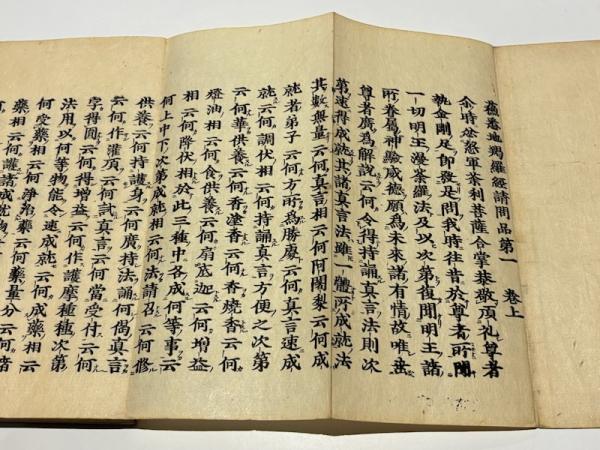 蘇悉地羯羅經請問品第一 卷上
尒時忿怒軍荼利菩薩合掌恭敬頂礼尊者
執金剛足即發是問我時往昔於尊者所聞
一切明王漫荼羅法及以次第復聞明王諸
所眷屬神驗威德願為未來諸有情故唯垂
尊者廣為解說云何令得持誦真言法則次
第速得成就其諸真言法雖一體所成就法
其數無量云何真言相云何阿闍梨云何成
就者弟子云何方所為勝處云何真言速成
就云何調伏相云何持誦真言方便之次第
云何華供養云何香塗香燒香云何
燈油相云何食供養云何扇底迦云何增益
相云何降伏相於此三種中各成何等事云
何上中下次第成就相云何法請召云何修
供養云何持護身云何廣持法誦何偈真言
云何作灌頂云何試真言云何當受付云何
字得圓云何得增益云何作護摩種種次第
法用以何等物能令速成就云何成藥相云
何受藥相云何淨治藥云何藥量分云何諸
藥相云何護諸成就物